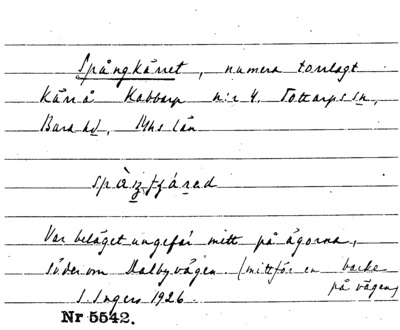 Spångkärret, numera torrlagt
kärr å Kabbarp n:r 4. Tottarps sn,
Bara hd, Mhs län
Var beläget ungefär mitt på ägorna,
söder om Dalbyvägen. (mittför en backe
på vägen)
S. Ingers 1926.
Nr 5542.